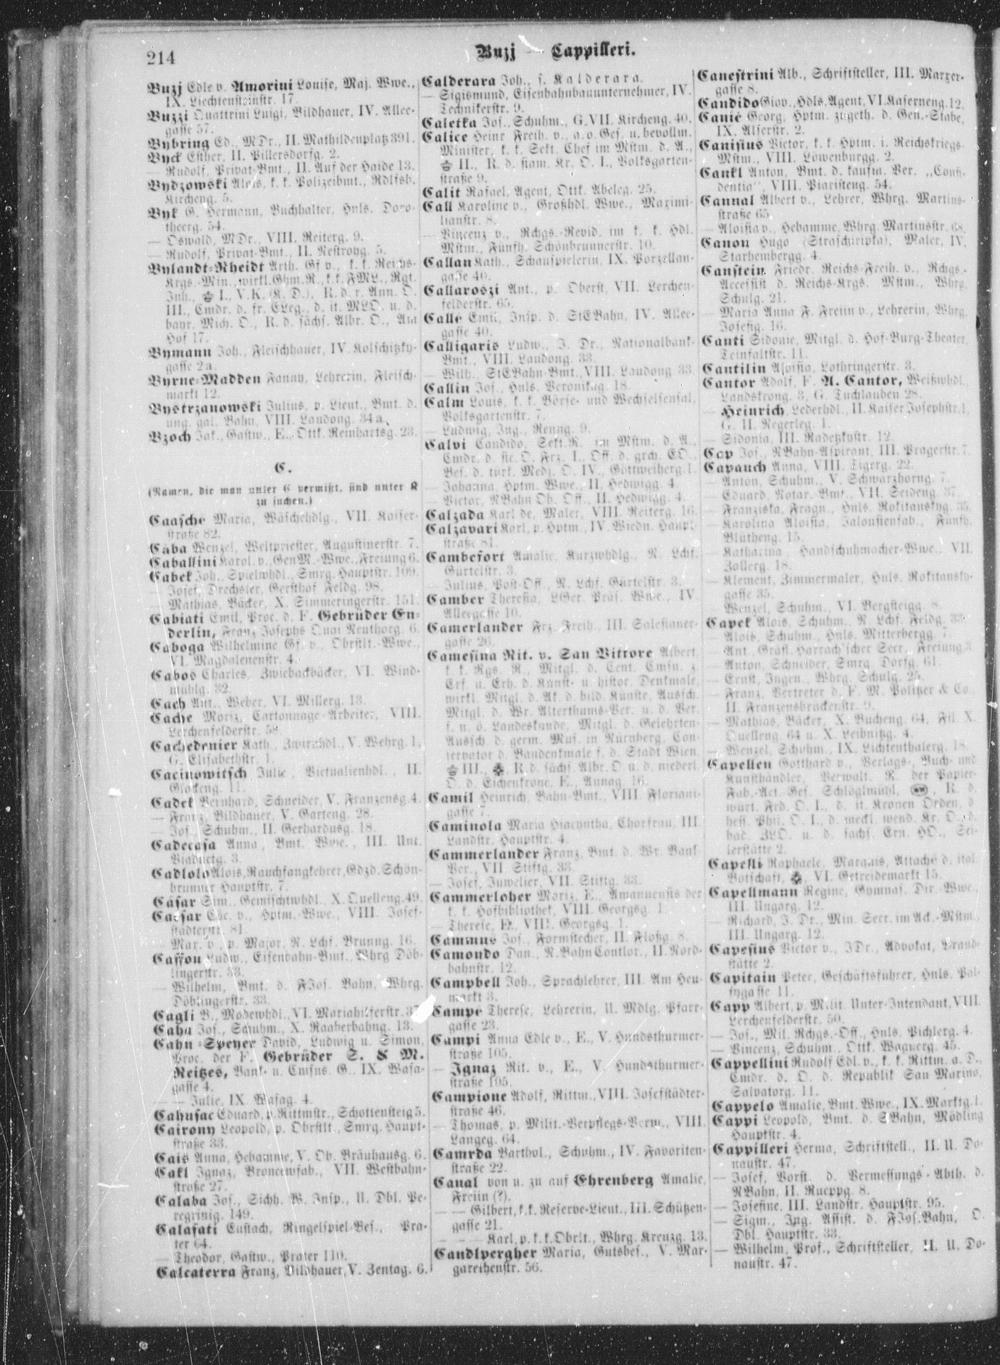 214
Buzj — Cappilleri.
Buzj Edle v. Amorini Louise, Maj. Wwe.,
IX. Liechtensteinstr. 17.
Buzzi Quattrini Luigi, Bildhauer, IV. Allee-
gasse 57.
Bybring Ed., MDr., II. Mathildenplatz 391.
Byck Esther, II. Pillersdorfg. 2.
— Rudolf, Privat-Bmt., II. Auf der Haide 13.
Bydzowski Alois, k. k. Polizeibmt., Rdlfsh.
Kircheng. 5.
Byk G. Hermann, Buchhalter, Hnls. Doro-
theerg. 54.
— Oswald, MDr., VIII. Reiterg. 9.
— Rudolf, Privat-Bmt., II. Nestroyg. 5.
Bylandt-Rheidt Arth. Gf v., k. k. Reichs-
Krgs.-Min., wirkl. Ghm. R., k. k. FML., Rgt.
Inh., I., V.K. (K. D.), R. d. r. Ann. O.
III., Cmdr. d. fr. ELeg., d. it. MLO. u. d.
bayr. Mich. O., R. d. sächs. Albr. O., Am
Hof 17.
Bymann Joh., Fleischhauer, IV. Kolschitzky-
gasse 2a.
Byrne-Madden Fanny, Lehrerin, Fleisch-
markt 12.
Bystrzanowski Julius, p. Lieut., Bmt. d.
ung. gal. Bahn, VIII. Laudong. 34a.
Bzoch Jak., Gastw., E., Ottk. Reinhartsg. 23.
C.
(Namen, die man unter C vermißt, sind unter K
zu suchen.)
Caasche Maria, Wäschehdlg., VII. Kaiser-
straße 82.
Caba Wenzel, Weltpriester, Augustinerstr. 7.
Caballini Karol. v., GenM.-Wwe., Freiung 6.
Cabek Joh., Spielwhdl., Smrg. Hauptstr. 109.
— Josef, Drechsler, Gersthof Feldg. 98.
— Mathias, Bäcker, X. Simmeringerstr. 151.
Cabiati Emil, Proc. d. F. Gebrüder En-
derlin, Franz Josephs Quai Neuthorg. 6.
Caboga Wilhelmine Gf v., Obrstlt.-Wwe.,
VI. Magdalenenstr. 4.
Cabos Charles, Zwiebackbäcker, VI. Wind-
mühlg. 32.
Cach Ant., Weber, VI. Millerg. 13.
Cache Moriz, Cartonnage-Arbeiter, VIII.
Lerchenfelderstr. 58.
Cachedenier Kath., Zwirnhdl., V. Wehrg. 1,
G. Elisabethstr. 1.
Cacinowitsch Julie, Victualienhdl., II.
Glockeng. 11.
Cadek Bernhard, Schneider, V. Franzensg. 4.
— Franz, Bildhauer, V. Garteng. 28.
— Jos., Schuhm., II. Gerhardusg. 18.
Cadecasa Anna, Bmt. Wwe., III. Unt.
Viaductg. 3.
Cadlolo Alois, Rauchfangkehrer, Gdzd. Schön-
brunner Hauptstr. 7.
Cäsar Sim., Gemischtwhdl., X. Quelleng. 49.
Caesar Ther. v., Hptm.-Wwe., VIII. Josef-
städterstr. 81.
— Mar. v., p. Major, N. Lchf. Brunng. 16.
Caffou Ludw., Eisenbahn-Bmt., Whrg. Döb-
lingerstr. 33.
— Wilhelm, Bmt. d. FJos. Bahn, Whrg.
Döblingerstr. 33.
Cagli B., Modewhdl., VI. Mariahilferstr. 37
Caha Jos., Schuhm., X. Raaberbahng. 13.
Cahn-Speyer David, Ludwig u. Simon,
Proc. der F. Gebrüder S. & M.
Reitzes, Bank- u. Cmsns. G., IX. Wasa-
gasse 4.
— — Julie, IX. Wasag. 4.
Cahusac Eduard, p. Rittmstr., Schottensteig 5.
Cairony Leopold, p. Obrstlt., Smrg. Haupt-
straße 33.
Cais Anna, Hebamme, V. Ob. Bräuhausg. 6.
Cakl Ignaz, Broncewfab., VII. Westbahn-
straße 27.
Calaba Jos., Sichh. W. Insp., U. Dbl. Pe-
regrinig. 149.
Calafati Eustach, Ringelspiel-Bes., Pra-
ter 64.
— Theodor, Gastw., Prater 110.
Calcaterra Franz, Bildhauer, V. Zentag. 6.
Calderara Joh., s. Kalderara.
— Sigismund, Eisenbahnbauunternehmer, IV.
Technikerstr. 9.
Caletka Jos., Schuhm., G. VII. Kircheng. 40.
Calice Heinr. Freih. v., a. o. Ges. u. bevollm.
Minister, k. k. Sekt. Chef im Mstm. d. A.,
II., R. d. siam. Kr. O. I., Volksgarten-
straße 9.
Calit Rafael, Agent, Ottk. Abeleg. 25.
Call Karoline v., Großhdl. Wwe., Maximi-
lianstr. 8.
— Vincenz v., Rchgs.-Revid. im k. k. Hdl.
Mstm., Fünfh. Schönbrunnerstr. 10.
Callan Kath., Schauspielerin, IX. Porzellan-
gasse 40.
Callaroszi Ant., p. Oberst, VII. Lerchen-
felderstr. 65.
Calle Emil, Insp. d. StEBahn, IV. Allee-
gasse 40.
Calligaris Ludw., J. Dr., Nationalbank-
Bmt., VIII. Laudong. 33.
— Wilh., StEBahn-Bmt., VIII. Laudong. 33.
Callin Jos., Hnls. Veronikag. 18.
Calm Louis, k. k. Börse- und Wechselsensal,
Volksgartenstr. 7.
— Ludwig, Ing., Renng. 9.
Calvi Candido, Sekt. R. im Mstm. d. A.,
Cmdr. d. sic. O. Frz. I., Off. d. grch. EO.,
Bes. d. türk. Medj. O. IV., Göttweiherg. 1.
— Johanna, Hptm. Wwe., II. Hedwigg. 4.
— Victor, NBahn Ob. Off., II. Hedwigg. 4.
Calzada Karl de, Maler, VIII. Reiterg. 16.
Calzavari Karl, p. Hptm., IV. Wiedn. Haupt-
straße 81.
Cambefort Amalie, Kurzwhdlg., N. Lchf.
Gürtelstr. 3.
— Julius, Post-Off., N. Lchf. Gürtelstr. 3.
Camber Theresia, LGer. Präs. Wwe., IV.
Alleegasse 10.
Camerlander Frz. Freih., III. Salesianer-
gasse 26.
Camesina Rit. v. San Vittore Albert,
k. k. Rgs. R., Mitgl. d. Cent. Cmsn. z.
Erf. u. Erh. d. Kunst- u. histor. Denkmale,
wirkl. Mitgl. d. Ak. d. bild. Künste, Ausch.
Mitgl. d. Wr. Alterthums-Ver. u. d. Ver.
f. n. ö. Landeskunde, Mitgl. d. Gelehrten-
Ausch. d. germ. Mus. in Nürnberg, Con-
servator d. Baudenkmale f. d. Stadt Wien,
III., R. d. sächs. Albr. O. u. d. niederl.
O. d. Eichenkrone, E., Annag. 16.
Camil Heinrich, Bahn-Bmt., VIII. Floriani-
gasse 7.
Caminola Maria Hiacyntha, Chorfrau, III.
Landstr. Hauptstr. 4.
Cammerlander Franz, Bmt. d. Wr. Bank
Ver., VII. Stiftg. 33.
— Josef, Juwelier, VII. Stiftg. 33.
Cammerloher Moriz, E., Amanuensis der
k. k. Hofbibliothek, VIII. Georgsg. 1.
— Therese, E., VIII. Georgsg. 1.
Cammus Jos., Formstecher, II. Floßg. 8.
Camondo Dan., N.Bahn Contlor., II. Nord-
bahnstr. 12.
Campbell Joh., Sprachlehrer, III. Am Heu-
markt 3.
Campe Therese, Lehrerin, U. Mdlg. Pfarr-
gasse 23.
Campi Anna Edle v., E., V. Hundsthurmer-
straße 105.
— Ignaz Rit. v., E., V. Hundsthurmer-
straße 105.
Campione Adolf, Rittm., VIII. Josefstädter-
straße 46.
— Thomas, p. Milit.-Verpflegs-Verw., VIII.
Langeg. 64.
Camrda Barthol., Schuhm., IV. Favoriten-
straße 22.
Canal von u. zu auf Ehrenberg Amalie,
Freiin (?).
— — Gilbert, k. k. Reserve-Lieut., III. Schützen-
gasse 21.
— — Karl, p. k. k. Obrlt., Whrg. Kreuzg. 13.
Candlpergher Maria, Gutsbes., V. Mar-
garethenstr. 56.
Canestrini Alb., Schriftsteller, III. Marxer-
gasse 8.
Candido Giov., Hdls. Agent, VI. Kaserneng. 12.
Canić Georg, Hptm. zugeth. d. Gen.-Stabe,
IX. Alserstr. 2.
Canisius Victor, k. k. Hptm. i. Reichskriegs-
Mstm., VIII. Löwenburgg. 2.
Cankl Anton, Bmt. d. kaufm. Ver. „Confi-
dentia“, VIII. Piaristeng. 54.
Cannal Albert v., Lehrer, Whrg. Martins-
straße 65.
— Aloisia v., Hebamme, Whrg. Martinsstr. 68.
Canon Hugo (Straschiripka), Maler, IV.
Starhembergg. 4.
Canstein Friedr. Reichs-Freih. v., Rchgs.-
Accessist d. Reichs-Krgs. Mstm., Whrg.
Schulg. 21.
— Maria Anna F. Freiin v., Lehrerin, Whrg.
Josefig. 16.
Canti Sidonie, Mitgl. d. Hof-Burg-Theater,
Teinfaltstr. 11.
Cantilin Aloisia, Lothringerstr. 3.
Cantor Adolf, F. A. Cantor, Weißwhdl.,
Landskrong. 3, G. Tuchlauben 28.
— Heinrich, Lederhdl., II. Kaiser Josephstr. 1,
G. II. Negerleg. 1.
— Sidonia, III. Radetzkystr. 12.
Cap Jos., NBahn-Aspirant, III. Pragerstr. 7.
Capauch Anna, VIII. Tigerg. 22.
— Anton, Schuhm., V. Schwarzhorng. 7.
— Eduard, Notar. Bmt., VII. Seideng. 37.
— Franziska, Fragn., Hnls. Rokitanskyg. 35.
— Karolina Aloisia, Jalousienfab., Fünfh.
Blütheng. 15.
— Katharina, Handschuhmacher-Wwe., VII.
Zollerg. 18.
— Klement, Zimmermaler, Hnls. Rokitansky-
gasse 35.
— Wenzel, Schuhm., VI. Bergsteigg. 8.
Capek Alois, Schuhm., N. Lchf. Feldg. 33.
— Alois, Schuhm., Hnls. Mitterbergg. 7.
— Ant., Gräfl. Harrach'scher Secr., Freiung 3.
— Anton, Schneider, Smrg. Dorfg. 61.
— Ernst, Ingen., Whrg. Schulg. 25.
— Franz, Vertreter d. F. M. Politzer & Co.,
II. Franzensbrückenstr. 9.
— Mathias, Bäcker, X. Bucheng. 64, Fil. X.
Quelleng. 64 u. X. Leibnitzg. 4.
— Wenzel, Schuhm., IX. Lichtenthalerg. 18.
Capellen Gotthard v., Verlags-, Buch- und
Kunsthändler, Verwalt. R. der Papier-
Fab.-Act. Ges. Schlöglmühl, R. d.
würt. Fred. O. I., d. it. Kronen Orden, d.
hess. Phil. O. I., d. meckl. wend. Kr. O., d.
bad. ZLO. u. d. sächs. Ern. HO., Sei-
lerstätte 2.
Capelli Raphaele, Marquis, Attaché d. ital.
Botschaft, VI. Getreidemarkt 15.
Capellmann Regine, Gymnas. Dir. Wwe.,
III. Ungarg. 12.
— Richard, J. Dr., Min. Secr. im Ack.-Mstm.,
III. Ungarg. 12.
Capesius Victor v., JDr., Advokat, Brand-
stätte 2.
Capitain Peter, Geschäftsführer, Hnls. Pal-
fygasse 11.
Capp Albert, p. Milit. Unter-Intendant, VIII.
Lerchenfelderstr. 50.
— Jos., Mil. Rchgs.-Off., Hnls. Pichlerg. 4.
— Vincenz, Schuhm., Ottk. Wagnerg. 45.
Cappellini Rudolf Edl. v., k. k. Rittm. a. D.,
Cmdr. d. O. d. Republik San Marino,
Salvatorg. 11.
Cappelo Amalie, Bmt. Wwe., IX. Marktg. 1.
Cappi Leopold, Bmt. d. SBahn, Mödling
Hauptstr. 4.
Cappilleri Herma, Schriftstell., II. U. Do-
naustr. 47.
— Josef, Vorst. d. Vermessungs-Abth. d.
NBahn, II. Rueppg. 8.
— Josefine, III. Landstr. Hauptstr. 95.
— Sigm., Ing. Assist. d. FJos. Bahn, O.
Dbl. Hauptstr. 33.
— Wilhelm, Prof., Schriftsteller, II. U. Do-
naustr. 47.